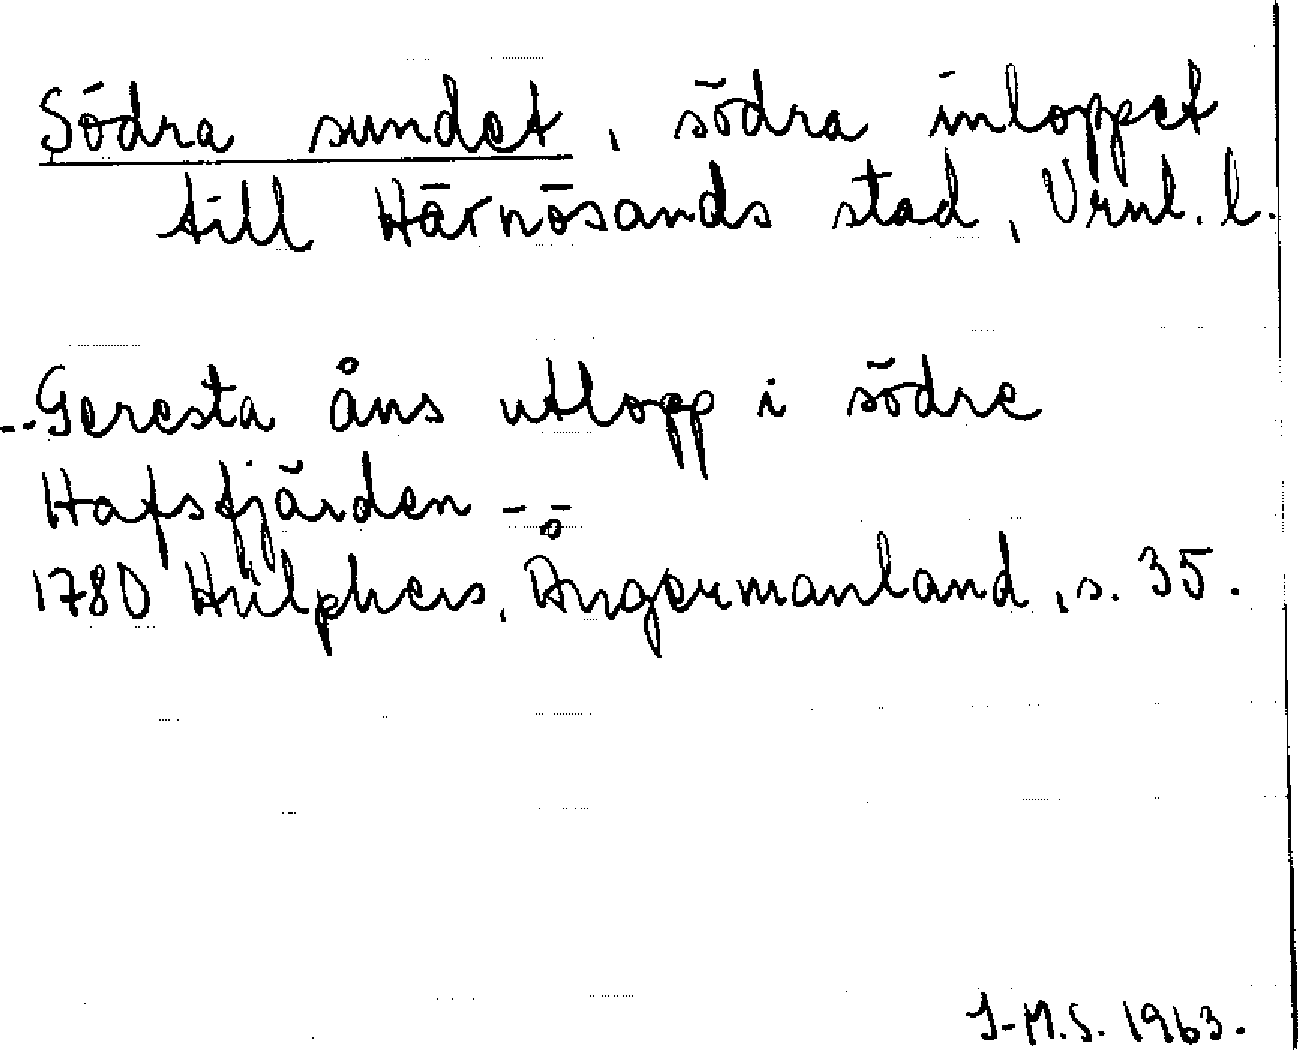 Södra sundet, södra inloppet
till Härnösands stad, Vrnl. l.
--Geresta åns utlopp i södre
Hafsfjärden --
1780 Hülphers, Ångermanland, s. 35.
I-M.S. 1963.